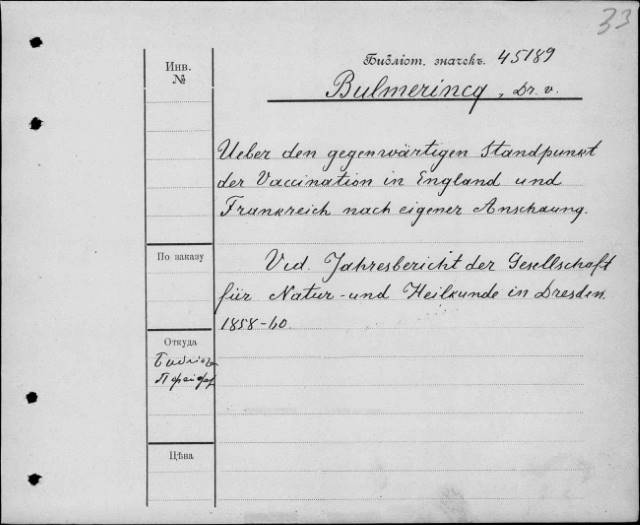 33
Инв.
№
Библіот. значекъ. 45189
Bulmerincq, Dr. v.
Ueber den gegenwärtigen Standpunkt
der Vaccination in England und
Frankreich nach eigener Anschauung.
По заказу
Vid. Jahresbericht der Gesellschaft
für Natur- und Heilkunde in Dresden.
1858-60.
Откуда
Цѣна